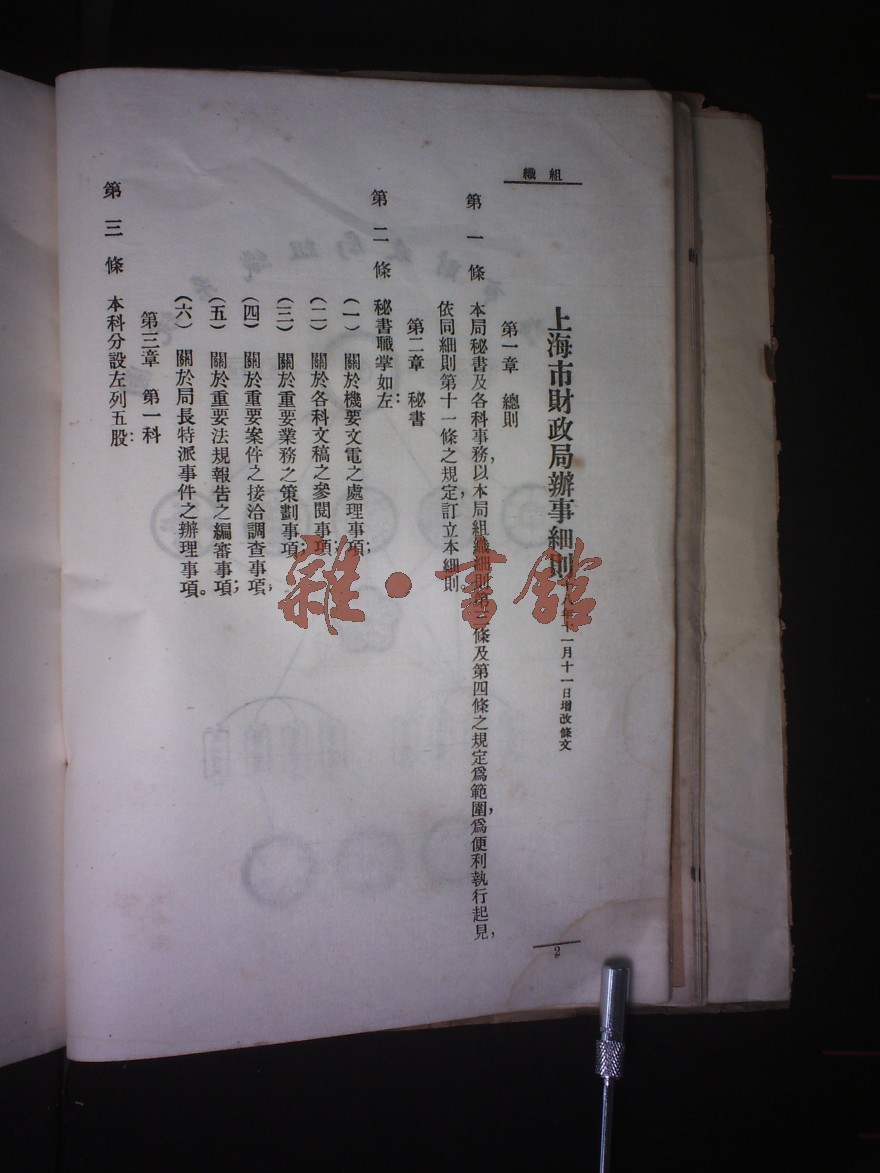 組織
上海市財政局辦事細則十八年十一月十一日增改條文
第一章 總則
第一條 本局秘書及各科事務，以本局組織細則第三條及第四條之規定爲範圍，爲便利執行起見，
依同細則第十一條之規定，訂立本細則。
第二章 秘書
第二條 秘書職掌如左：
（一） 關於機要文電之處理事項；
（二） 關於各科文稿之參閱事項；
（三） 關於重要業務之策劃事項；
（四） 關於重要案件之接洽調查事項；
（五） 關於重要法規報告之編審事項；
（六） 關於局長特派事件之辦理事項。
第三章 第一科
第三條 本科分設左列五股：
2
雜·書館